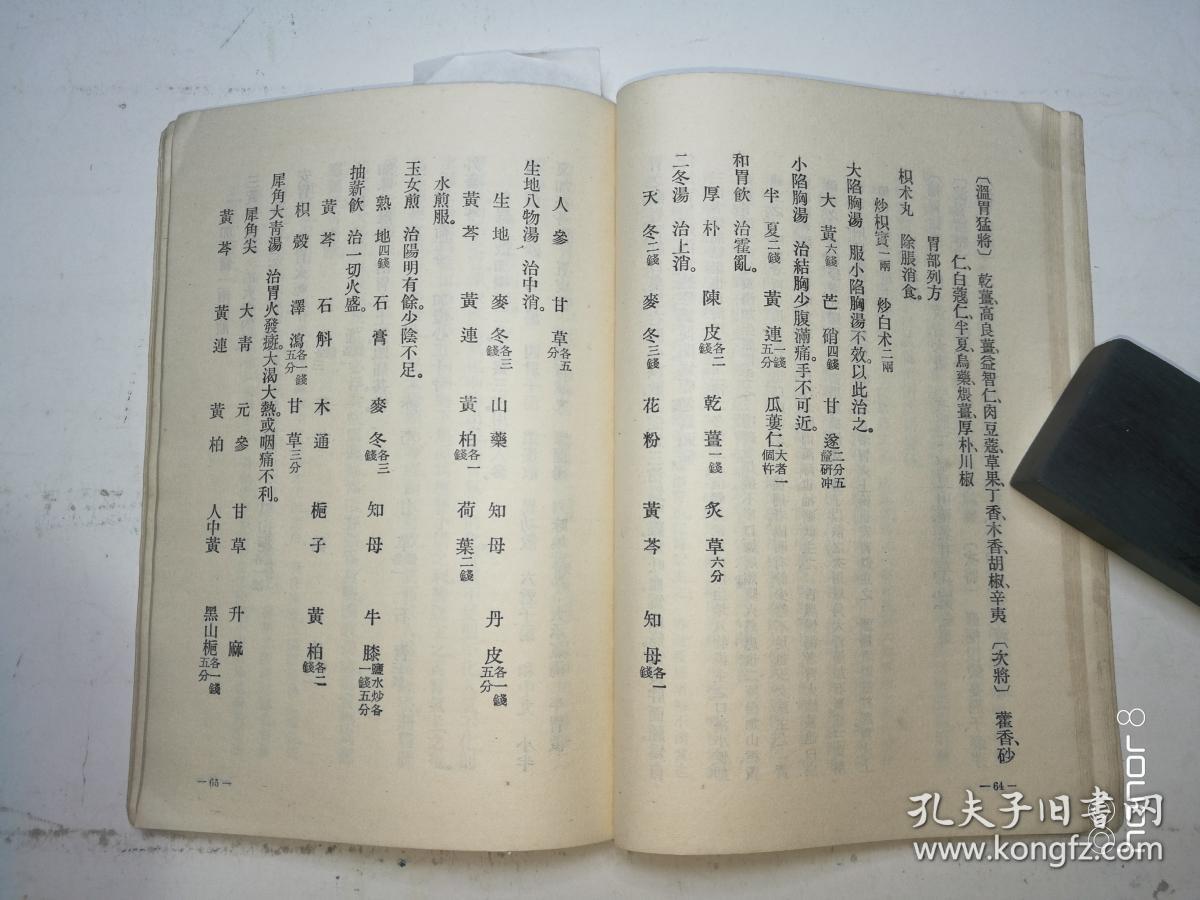 〔溫胃猛將〕 乾薑、高良薑、益智仁、肉豆蔻、草果、丁香、木香、胡椒、辛夷 〔次將〕 藿香、砂
仁、白蔻仁、半夏、烏藥、煨薑、厚朴、川椒
胃部列方
枳朮丸 除脹消食。
炒枳實一兩 炒白朮二兩
大陷胸湯 服小陷胸湯不效。以此治之。
大黃六錢 芒硝四錢 甘遂二分五釐研冲
小陷胸湯 治結胸少腹滿痛。手不可近。
半夏二錢 黃連一錢五分 瓜蔞仁大者一個杵
和胃飲 治霍亂。
厚朴 陳皮各二錢 乾薑一錢 炙草六分
二冬湯 治上消。
天冬二錢 麥冬三錢 花粉 黃芩 知母各一錢
—64—
人參 甘草各五分
生地八物湯 治中消。
生地 麥冬各三錢 山藥 知母 丹皮各一錢五分
黃芩 黃連 黃柏各一錢 荷葉二錢
水煎服。
玉女煎 治陽明有餘。少陰不足。
熟地四錢 石膏 麥冬各三錢 知母 牛膝鹽水炒各一錢五分
抽薪飲 治一切火盛。
黃芩 石斛 木通 梔子 黃柏各二錢
枳殼 澤瀉各一錢五分 甘草三分
犀角大青湯 治胃火發癍。大渴大熱。或咽痛不利。
犀角尖 大青 元參 甘草 升麻
黃芩 黃連 黃柏 人中黃 黑山梔各一錢五分
—65—
孔夫子旧书网
www.kongfz.com
honor 8